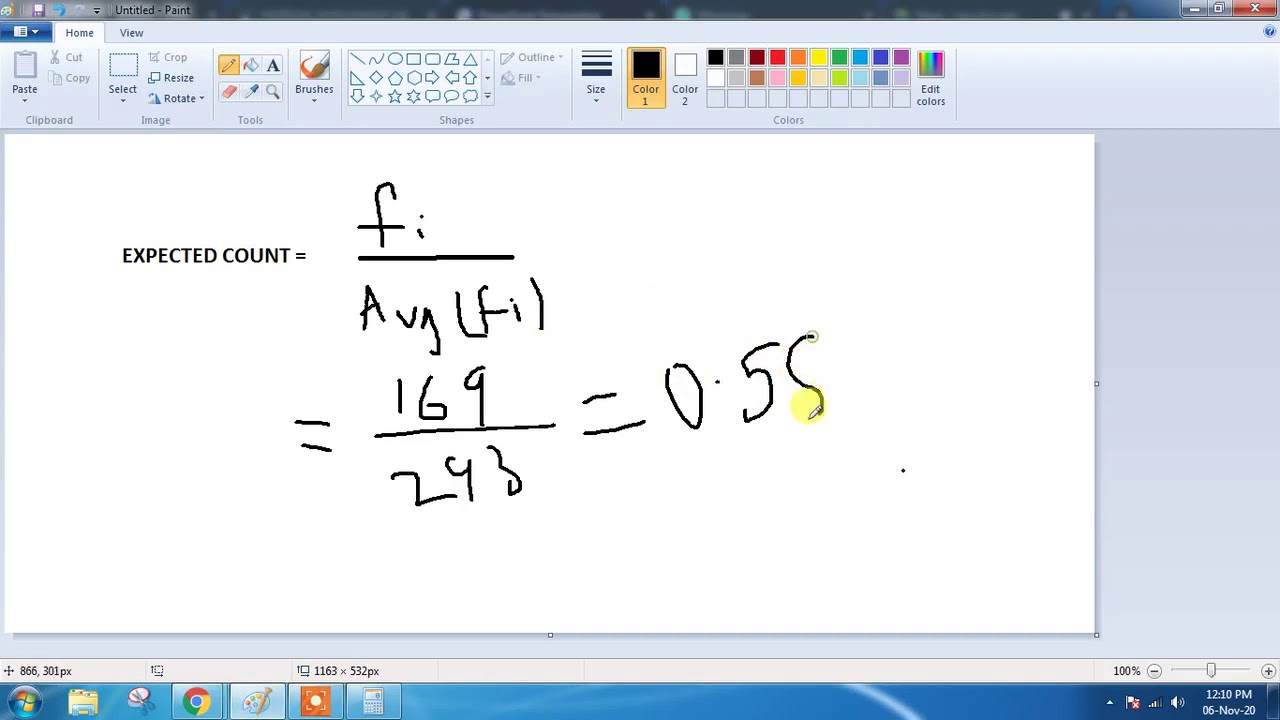 Untitled - Paint
Home View
Cut
Copy
Paste
Clipboard
Crop
Resize
Rotate
Select
Image
Tools
Brushes
Outline
Fill
Shapes
Size
Color 1
Color 2
Edit colors
Colors
fi
EXPECTED COUNT =
Avg(fi)
= 169 = 0.55
293
866, 301px
1163 × 532px
100%
12:10 PM
06-Nov-20